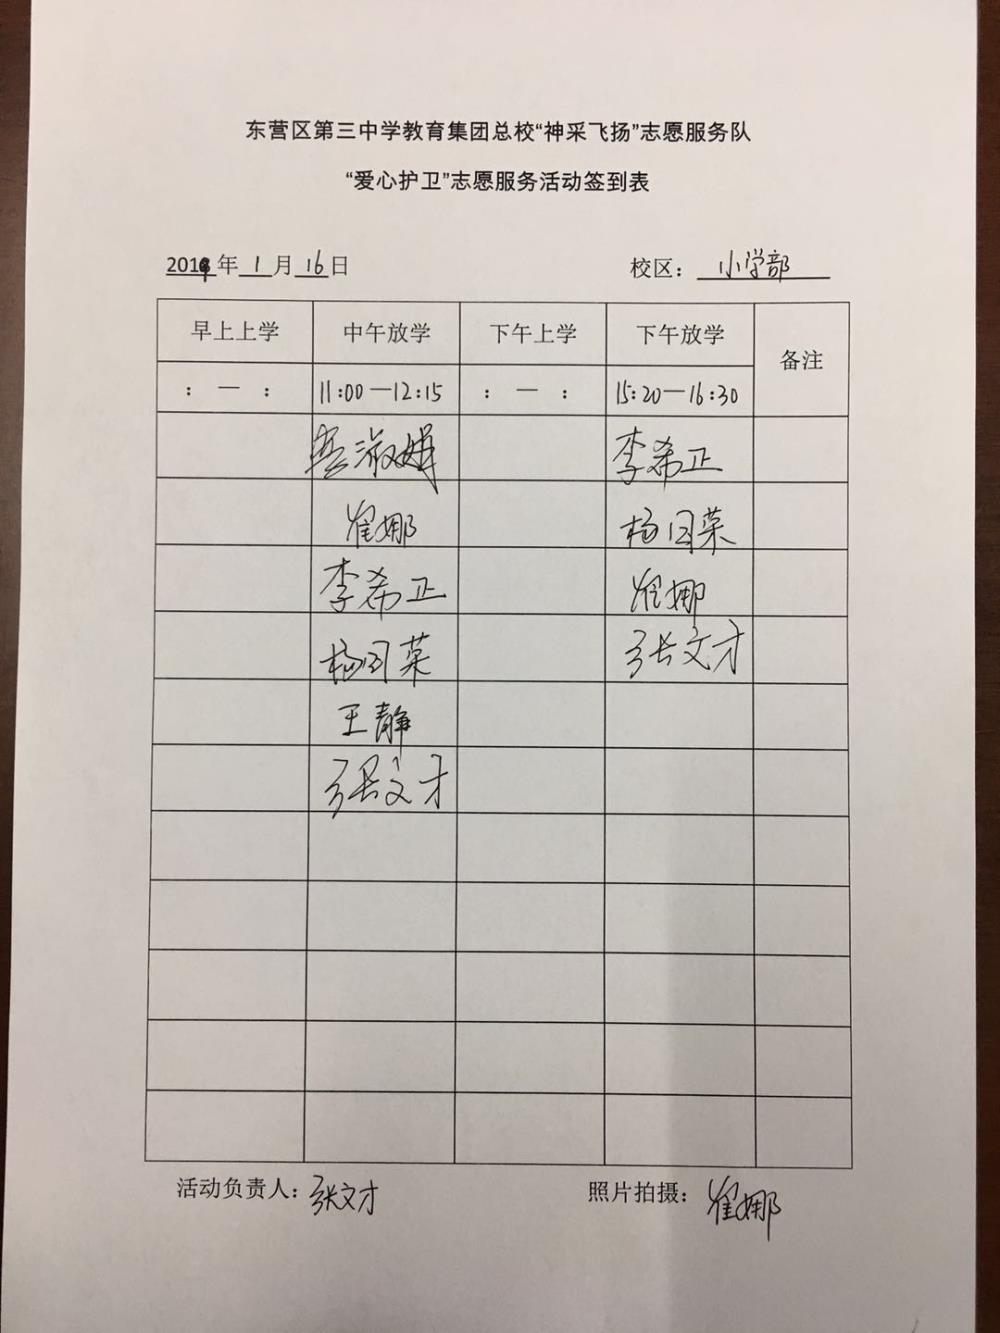 东营区第三中学教育集团总校“神采飞扬”志愿服务队
“爱心护卫”志愿服务活动签到表
2019年1月16日 校区：小学部
早上上学 中午放学 下午上学 下午放学 备注
： — ： 11:00—12:15 ： — ： 15:20—16:30
淑娟 李希正
崔娜 杨国荣
李希正 崔娜
杨国荣 张文才
王静
张文才
活动负责人：张文才 照片拍摄：崔娜